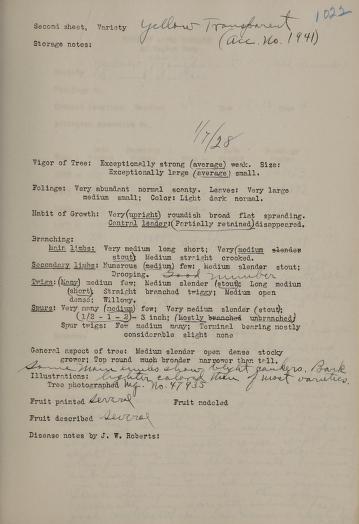 1022
Second sheet, Variety Yellow Transparent
Storage notes: (Acc. No. 1941)
1/7/28
Vigor of Tree: Exceptionally strong (average) weak. Size:
Exceptionally large (average) small.
Foliage: Very abundant normal scanty. Leaves: Very large
medium small; Color: Light dark normal.
Habit of Growth: Very (upright) roundish broad flat spreading.
Central leader: (Partially retained) disappeared.
Branching:
Main limbs: Very medium long short; Very (medium slender
stout) Medium straight crooked.
Secondary limbs: Numerous (medium) few; Medium slender stout;
Drooping. Good number
Twigs: (Many) medium few; Medium slender (stout; Long medium
(short). Straight branched twiggy; Medium open
dense; Willowy.
Spurs: Very many (medium) few; Very medium slender (stout;
(1/2 - 1 - 2) - 3 inch; (mostly branched unbranched)
Spur twigs: Few medium many; Terminal bearing mostly
considerable slight none
General aspect of tree: Medium slender open dense stocky
grower; Top round much broader narrower than tall.
Some main limbs show blight cankers. Bark
Illustrations: lighter colored than of most varieties.
Tree photographed Neg. No. 47935
Fruit painted Several Fruit modeled
Fruit described Several
Disease notes by J. W. Roberts: